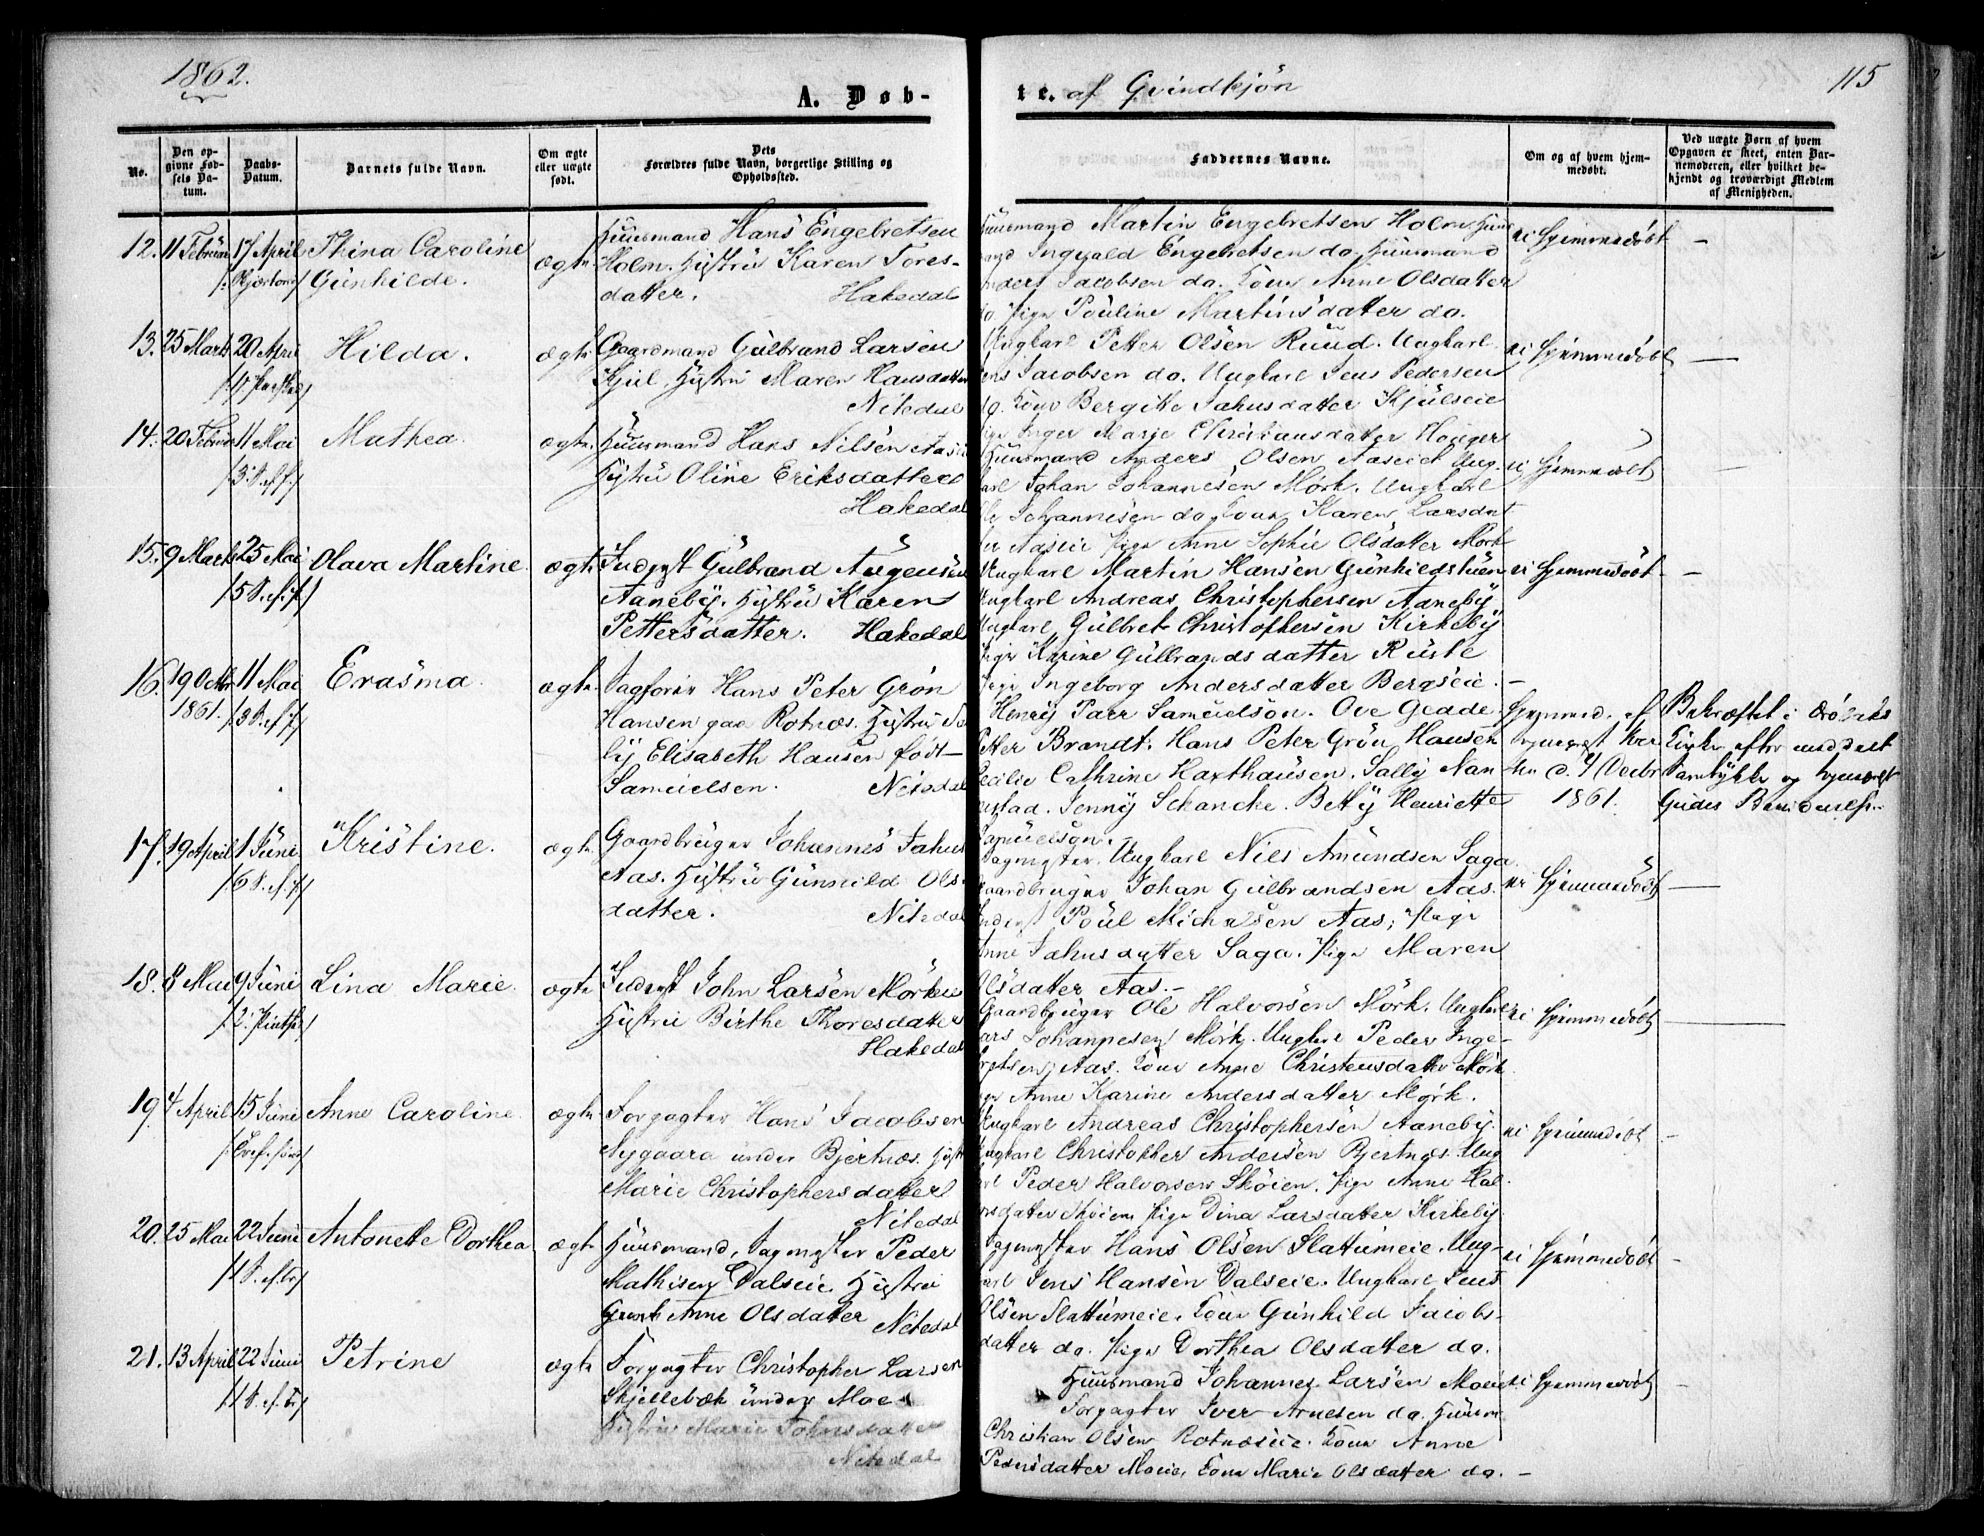 1862.
A. Døb-
te. af Qvindkjøn
115
No.
Den opgivne Fødsels Datum.
Daabs-Datum.
Barnets fulde Navn.
Om ægte eller uægte født.
Dets Forældres fulde Navn, borgerlige Stilling og Opholdssted.
Faddernes Navne.
Om og af hvem hjemmedøbt.
Ved uægte Børn af hvem Opgaven er skeet, enten Barnemoderen, eller hvilket bekjendt og troværdigt Medlem af Menigheden.
12. 11 Februar 17 April Thina Caroline
Gunhilde.
ægte
Huusmand Hans Engebretsen
Holm. Hustru Karen Tores-
datter. Hakedal
Huusmand Martin Engebretsen Holm. Huus
mand Ingvald Engebretsen do. Huusmand
Anders Jacobsen do. Kone Anne Olsdatter
do. Pige Pouline Martinsdatter do.
ei hjemmedøbt
13. 25 Marts 20 April Hilda.
ægte
Gaardmand Gulbrand Larsen
Kjul. Hustru Maren Hansdatter
Nitedal
Ungkarl Petter Olsen Ruud. Ungkarl
Jens Jacobsen do. Ungkarl Jens Pedersen
do. Kone Bergitte Jahnsdatter Kjulseie
Pige Inger Marie Christiansdatter Houger
ei hjemmedøbt
14. 20 Februar 11 Mai Mathea
/3. S. ef. P./
ægte
Huusmand Hans Nilsen Aaseie
Hustru Oline Eriksdatter
Hakedal
Huusmand Anders Olsen Aaseiet. Ung-
karl Johan Johannesen Mørk. Ungkarl
Ole Johannesen do. Kone Karen Larsdat
ter Aaseie. Pige Anne Sophie Olsdatter Mørk
ei hjemmedøbt
15. 9 Marts 25 Mai Olava Martine
/5 S. ef. P./
ægte
Inderst Gulbrand Augensen
Aaneby. Hustru Karen
Pettersdatter. Hakedal
Ungkarl Martin Hansen Gunhildstuen
Ungkarl Andreas Christophersen Aaneby
Ungkarl Gulbret Christophersen Kirkeby
Pige Karine Gulbrandsdatter Ruste
Pige Ingeborg Andersdatter Bergseie.
ei hjemmedøbt
16. 19 Octbr 11 Mai Erasma
1861. /3 S. ef. P./
ægte
Sagfører Hans Peter Grøn
Hansen paa Rotnæs. Hustru
Elisabeth Hansen født
Samuelsen. Nitedal
Henry Parr Samuelson. Ove Geade
Petter Brandt. Hans Peter Grøn Hansen
Cecilie Cathrine Haxthausen. Sally Nan
nestad. Jenny Schancke. Betty Henriette
Samuelson.
Hjemmed. af
1861.
Bekræftet i Drøbaks
Kirke efter meddelt
17. 19 April 1 Juni Kristine.
/6 S. ef. P./
ægte
Gaardbruger Johannes Jahns
Aas. Hustru Gunnild Ols-
datter. Nitedal
Sagmester. Ungkarl Niels Amundsen Saga
Gaardbruger Johan Gulbrandsen Aas.
Inderst Poul Michelsen Aas; Pige
Anne Jahnsdatter Saga. Pige Maren
Olsdatter Aas.
ei hjemmedøbt
18. 8 Mai 9 Juni Lina Marie.
/2. Pintsed./
ægte
Inderst John Larsen Mørkeie
Hustru Birthe Thoresdatter
Hakedal
Gaardbruger Ole Halvorsen Mørk. Ungkarl
Lars Johannesen Mørk. Ungkarl Peder Inge-
bretsen Aas. Kone Anne Christensdatter Mørk
Pige Anne Karine Andersdatter Mørk.
ei hjemmedøbt
19. 4 April 15 Juni Anne Caroline
ægte
Forpagter Hans Jacobsen
Nygaard under Bjertnæs. Hust
Marie Christophersdatter
Nitedal
Ungkarl Andreas Christophersen Aaneby.
Ungkarl Christopher Andersen Bjertnæs. Ung
karl Peder Halvorsen Skøien. Pige Anne Hal-
vorsdatter Skøien. Pige Dina Larsdatter Kirkeby
ei hjemmedøbt
20. 25 Mai 22 Juni Antonette Dorthea
/1 S. ef. Tr/
ægte
Huusmand, Sagmester Peder
Mathisen Dalseie. Hustru
Anne Olsdatter Nitedal
Sagmester Hans Olsen Slattumeie. Ung-
karl Jens Hansen Dalseie. Ungkarl Jens
Olsen Slattumeie. Kone Gunhild Jacobs-
datter do. Pige Dorthea Olsdatter do.
ei hjemmedøbt
21. 13 April 22 Juni Petrine
/1 S. ef. Tr/
ægte
Forpagter Christopher Larsen
Skjellebæk under Moe
Hustru Marie Johnsdatter
Nitedal
Huusmand Johannes Larsen Moeie
Forpagter Iver Arnesen do. Huusm
Christian Olsen Rotnæseie. Kone Anne
Pedersdatter Moeie. Kone Marie Olsdatter do.
ei hjemmedøbt